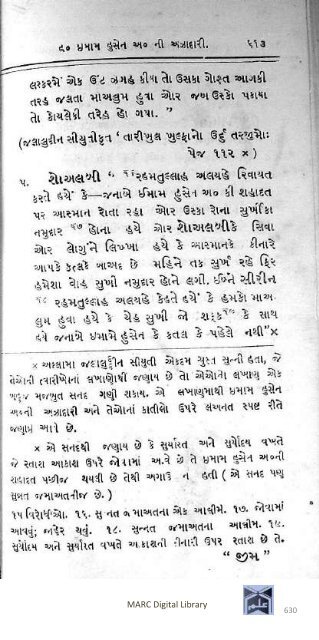 ૯૦ ઇમામ હુસેન અ૦ ની અઝાદારી. ૬૧૩
લશ્કરમેં એક ઉંટ ઝબ્હ કીયા તો ઉસકા ગોશ્ત આગકી
તરહ જલતા માઅલુમ હુવા ઔર જબ ઉસ્કો પકાયા
તો કાયલેકી તરેહ હો ગયા. ”
(જલાલુદ્દીન સીયુતીકૃત ‘તારીખુલ ખુલ્ફા’નો ઉર્દુ તરજુમો:
પેજ ૧૧૨ ×)
૫. શોઅલબી ૧૬રહમતુલ્લાહ અલયહે રિવાયત
કરતે હયેં કે—જનાબે ઈમામ હુસેન અ૦ કી શહાદત
પર આસ્માન રોતા રહા ઔર ઉસ્કા રોના સુર્ખીકા
નમુદાર ૧૭ હોના હયે ઔર શોઅલબીકે સિવા
ઔર લોગુંને લિખ્ખા હયે કે આસ્માનકે કીનારે
આપકે કતલકે બાઅદ છ મહિને તક સુર્ખ રહે ફિર
હમેશા વોહ સુર્ખી નમુદાર હોને લગી. ઈબ્ને સીરીન
૧૮ રહમતુલ્લાહ અલયહે કેહતે હયેં ‘ કે હમકો માઅ-
લુમ હુવા હયે કે યેહ સુર્ખી જો શફક૧૯ કે સાથ
હયે જનાબે ઇમામે હુસેન કે કતલ કે પહેલે નથી”×
× અલ્લામા જલાલુદ્દીન સીયુતી એકદમ ચુસ્ત સુન્ની હતા, જે
તેઓની તારીખોનાં લખાણોથી જણાય છે તો એઓનો લખાણ એક
મજબુત સનદ ગણી શકાય. એ લખાણમાથી ઇમામ હુસેન
અ૦ની અઝાદારી અને તેઓનાં કાતીલો ઉપર લઅનત સ્પષ્ટ રીતે
જણાઇ આવે છે.
× એ સનદથી જણાય છે કે સુર્યાસ્ત અને સુર્યોદય વખતે
જે રતાશ આકાશ ઉપર જોવામાં આવે છે તે ઇમામ હુસેન અ૦ની
શહાદત પછીજ થયલી છે તેથી અગાઉ ન હતી ( એ સનદ પણ
સુન્નત જમાઅતનીજ છે. )
૧૫ વિરોધીઓ. ૧૬. સુન્નત જમાઅતના એક આલીમ. ૧૭. જોવામાં
આવવું; જાહેર થવું. ૧૮. સુન્નત જમાઅતના આલીમ. ૧૯.
સુર્યોદય અને સુર્યાસ્ત વખતે આકાશની કીનારી ઉપર રતાશ છે તે.
“ જીમ ”
MARC Digital Library
630